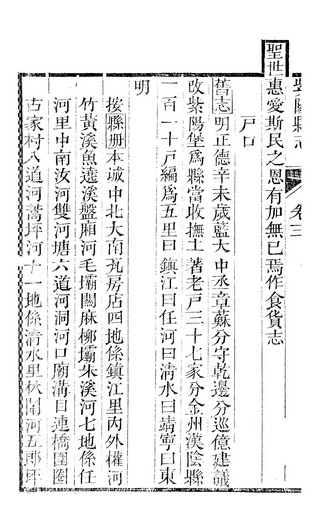 紫陽縣志 卷三
聖世惠愛斯民之恩有加無已焉作食貨志
戶口
舊志明正德辛未歲藍大中丞章蘇分守乾邊分巡億建議
改紫陽堡爲縣當收撫土著老戶三十七家分金州漢陰縣
二百一十戶編爲五里曰鎮江曰任河曰清水曰靖寧曰東
明
按縣册本城中北大南瓦房店四地係鎮江里內外權河
竹黃溪魚遶溪盤廂河毛壩關麻柳壩朱溪河七地係任
河里中南汝河雙河塘六道河洞河口廟溝目連橋圍圈
古家村八道河蒿坪河十一地係清水里楸閞河五郎坪